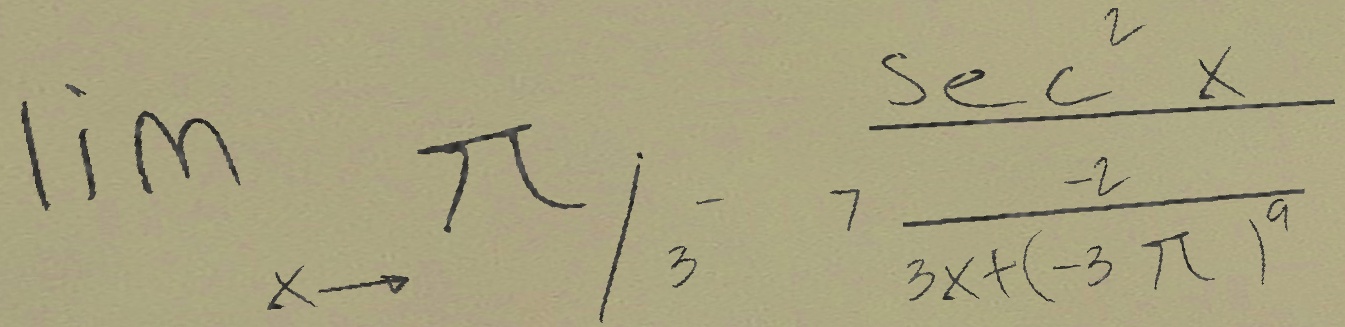 \lim_{x \to \pi/3^-} \frac{\sec^2 x}{7 \frac{-2}{3x+(-3\pi)^9}}